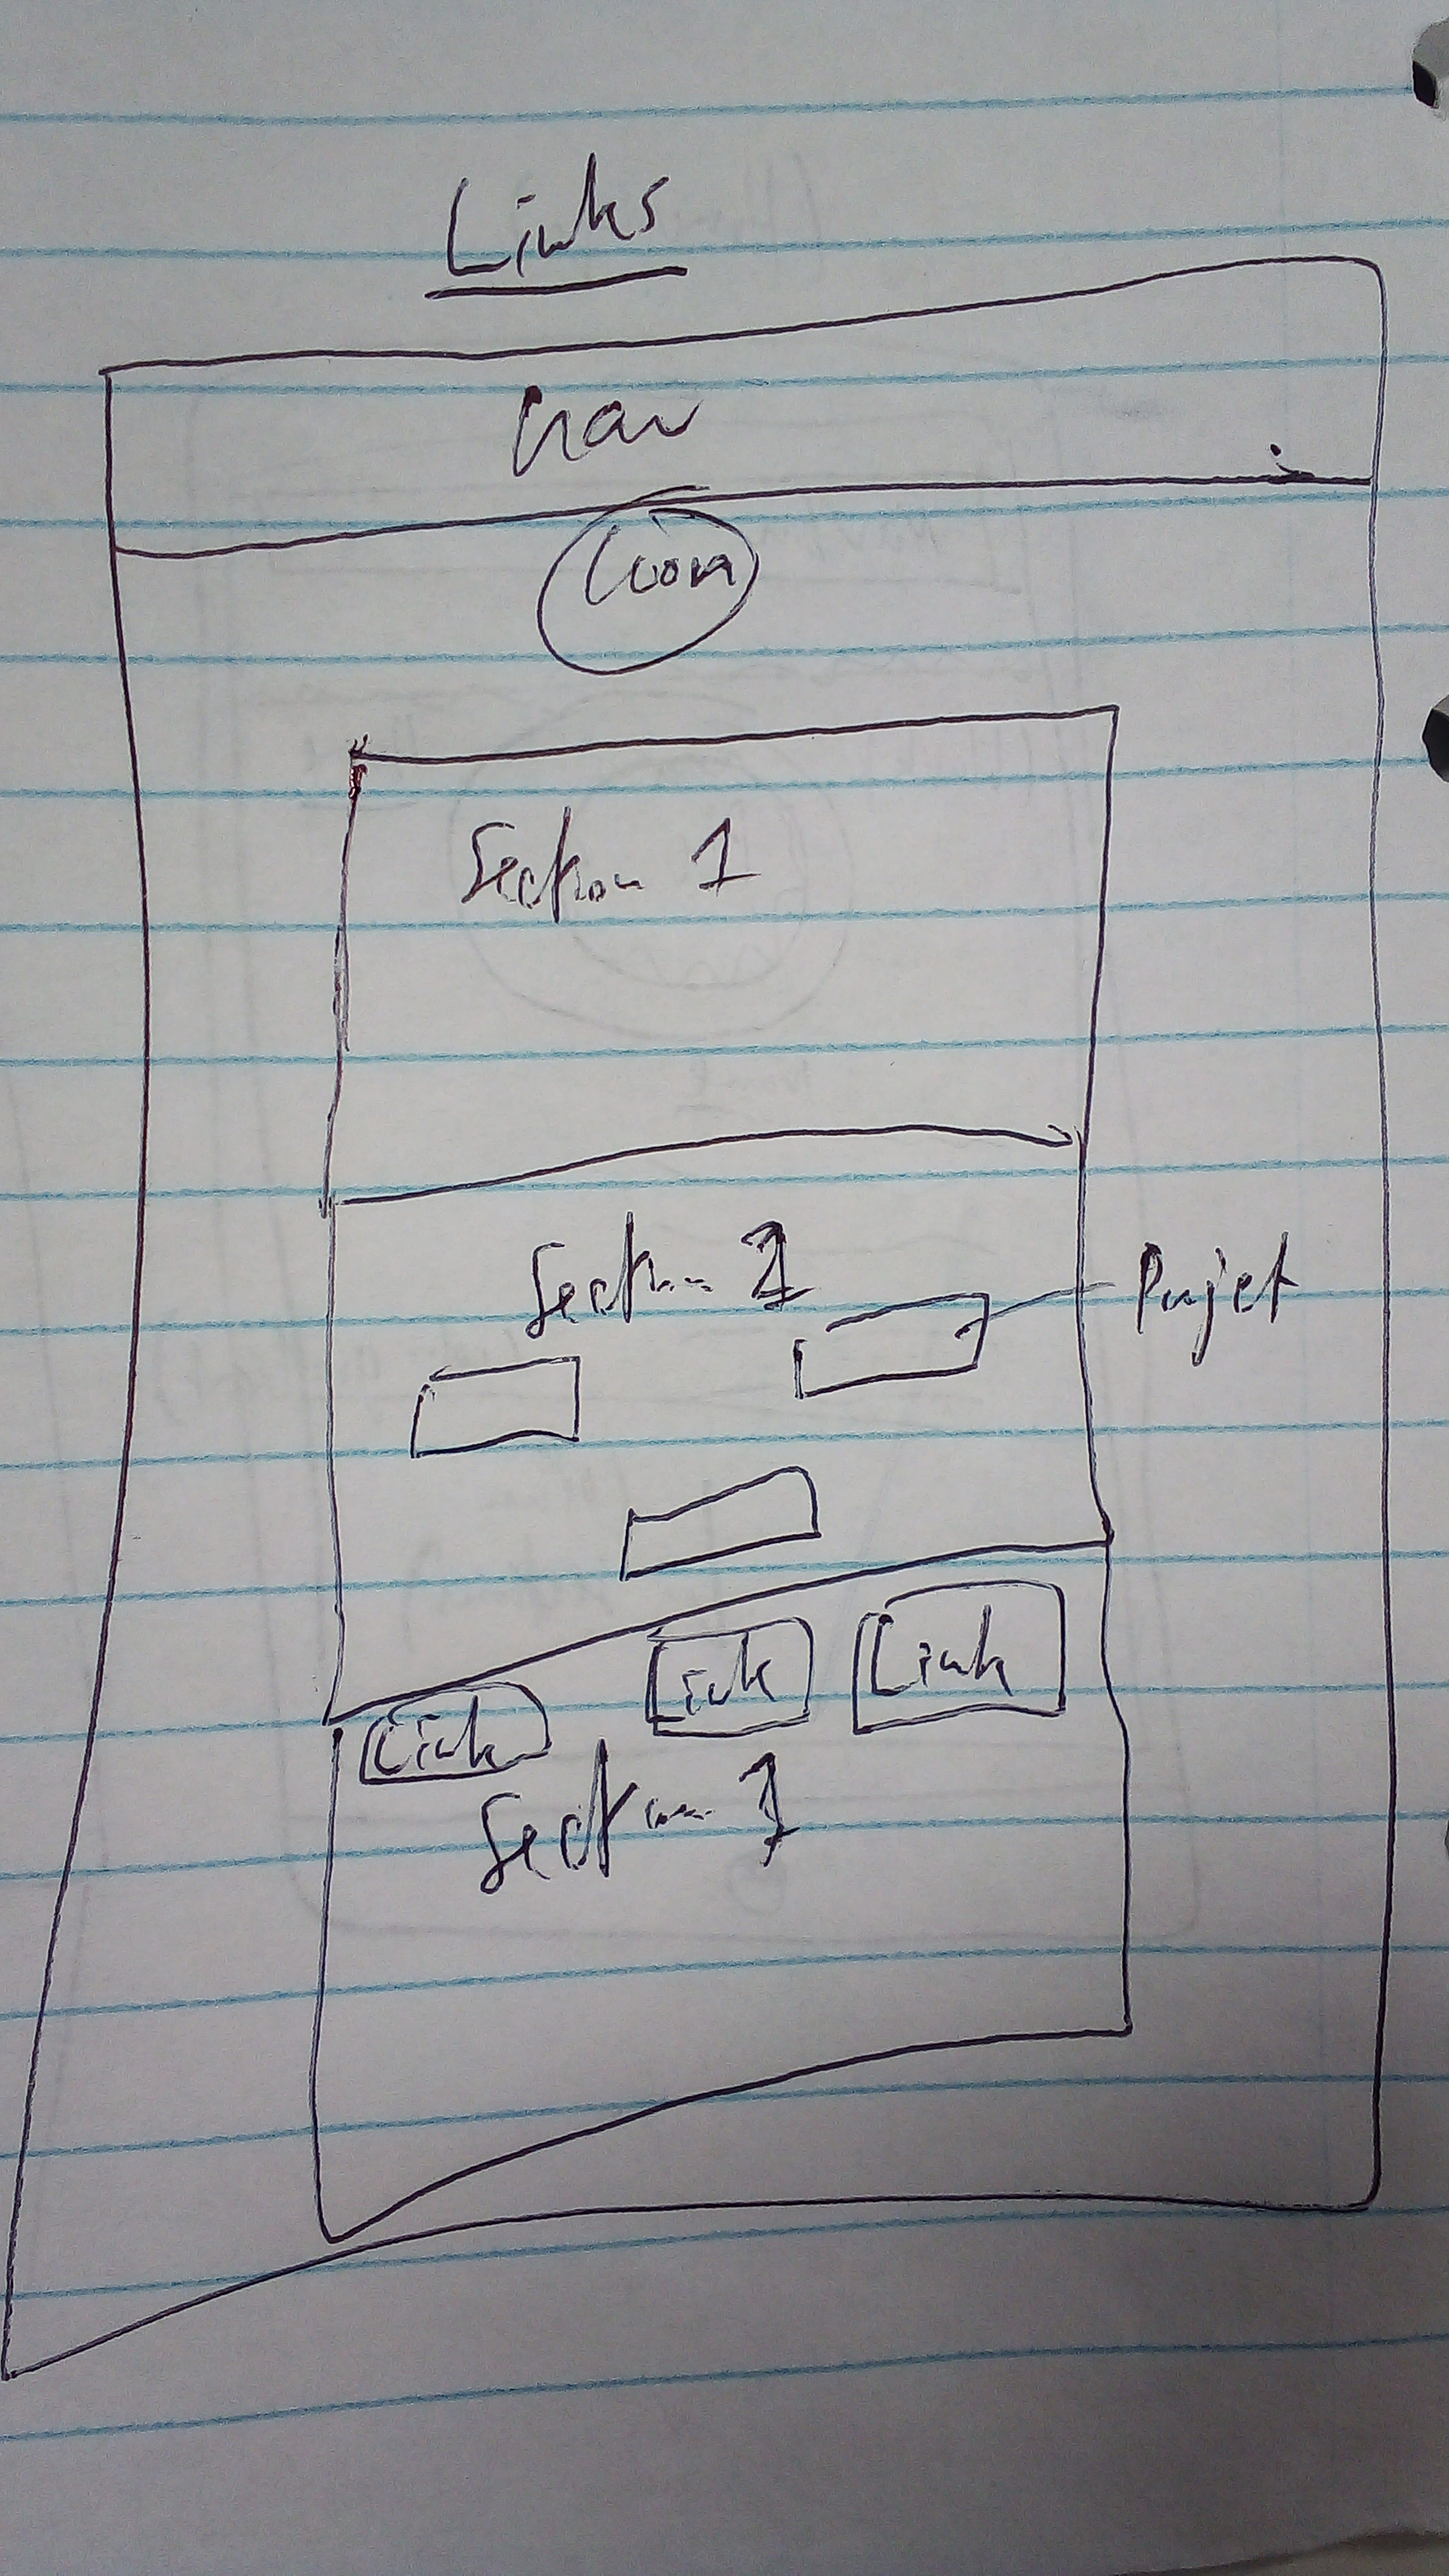 Links
nav
icon
Section 1
Section 2
Projet
Link
Link
Link
Section 3